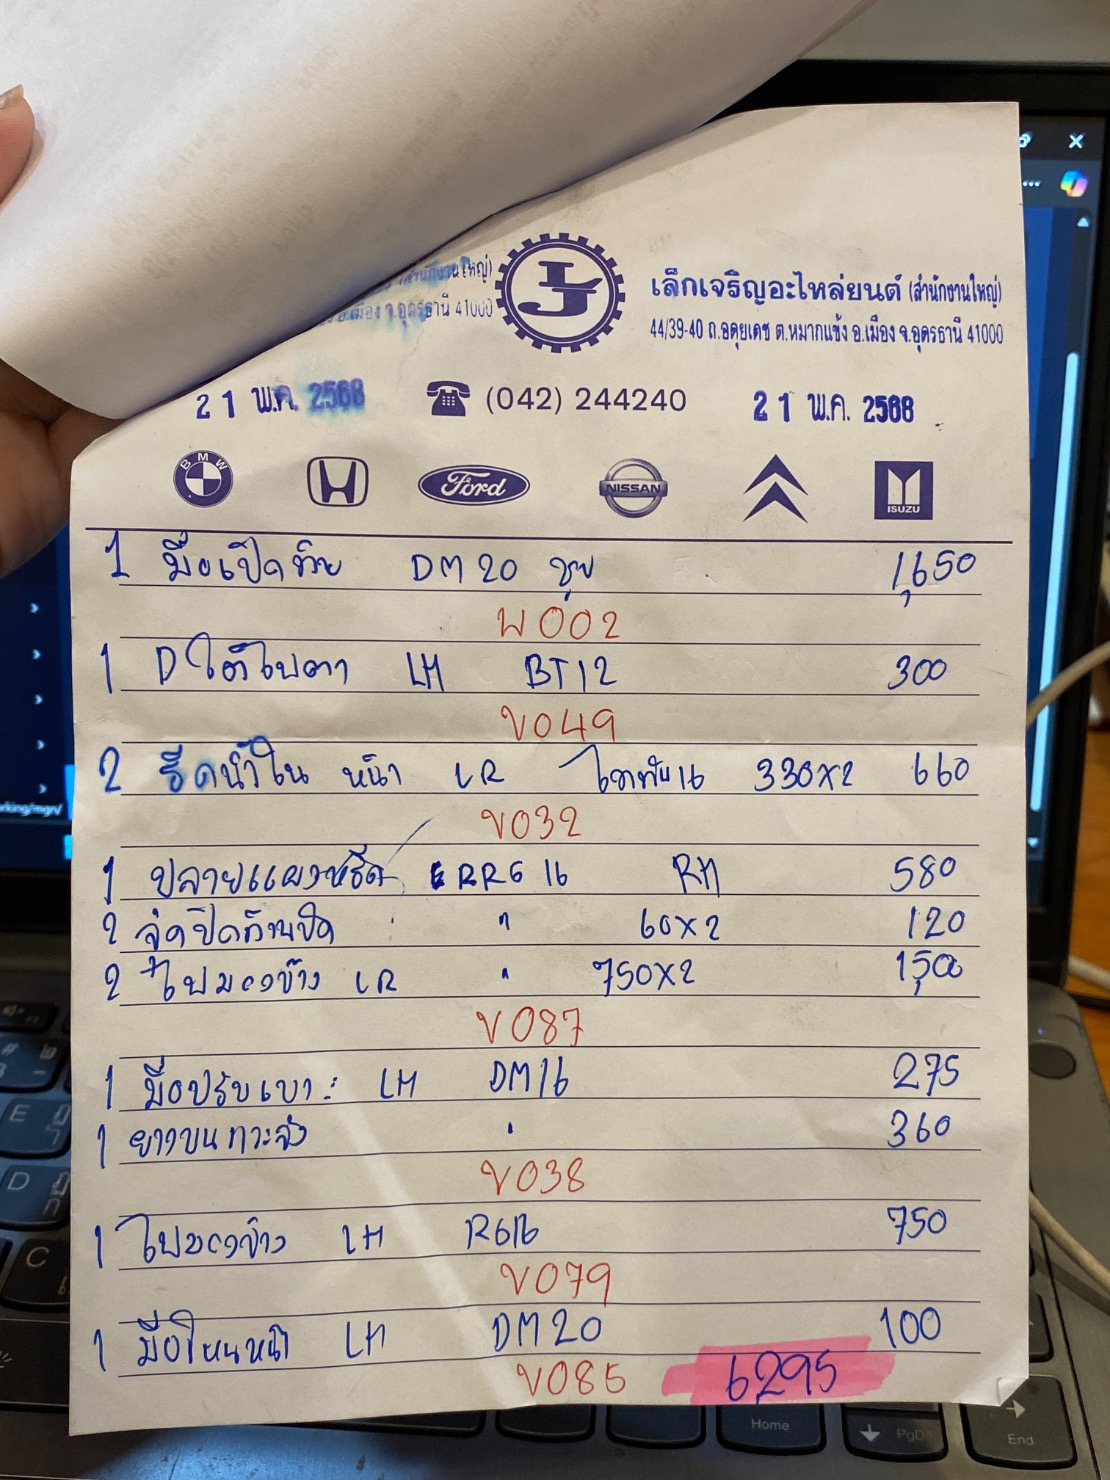 (สำนักงานใหญ่)
อ.เมือง จ.อุดรธานี 41000
เล็กเจริญอะไหล่ยนต์ (สำนักงานใหญ่)
44/39-40 ถ.อดุยเดช ต.หมากแข้ง อ.เมือง จ.อุดรธานี 41000
21 พ.ค. 2568 (042) 244240 21 พ.ค. 2568
BMW Ford NISSAN ISUZU
1 มือเปิดท้าย DM20 ชุบ 1,650
W002
1 D ใต้ไฟตา LH BT12 300
V049
2 รีดน้ำใน หน้า LR 330x2 660
V032
1 ปลายแผงหรีด RR6 16 RH 580
2 " 60x2 120
2 ไฟมองข้าง LR " 750x2 1,500
V087
1 มือปรับเบาะ LH DM16 275
1 ยางบนกระจัง " 360
V038
1 ไฟมองข้าง LH R616 750
V079
1 มือโหนหน้า LH DM20 100
V085 6295
E
D
C
Home
PgDn
End